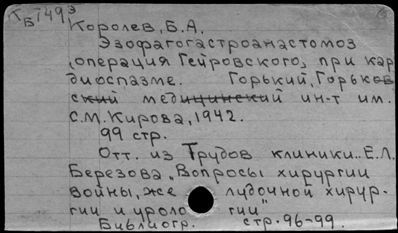 К 7493
Б
Королев, Б.А.
Эзофагогастроанастомоз
(операция Гейровского) при кар
диоспазме. Горький, Горьков
ский медицинский ин-т им.
С.М. Кирова, 1942.
99 стр.
Отт. из Трудов клиники.. Е.Л.
Березова „Вопросы хирургии
войны, же лудочной хирур-
гии и уроло гии"
Библиогр. стр. 96-99.